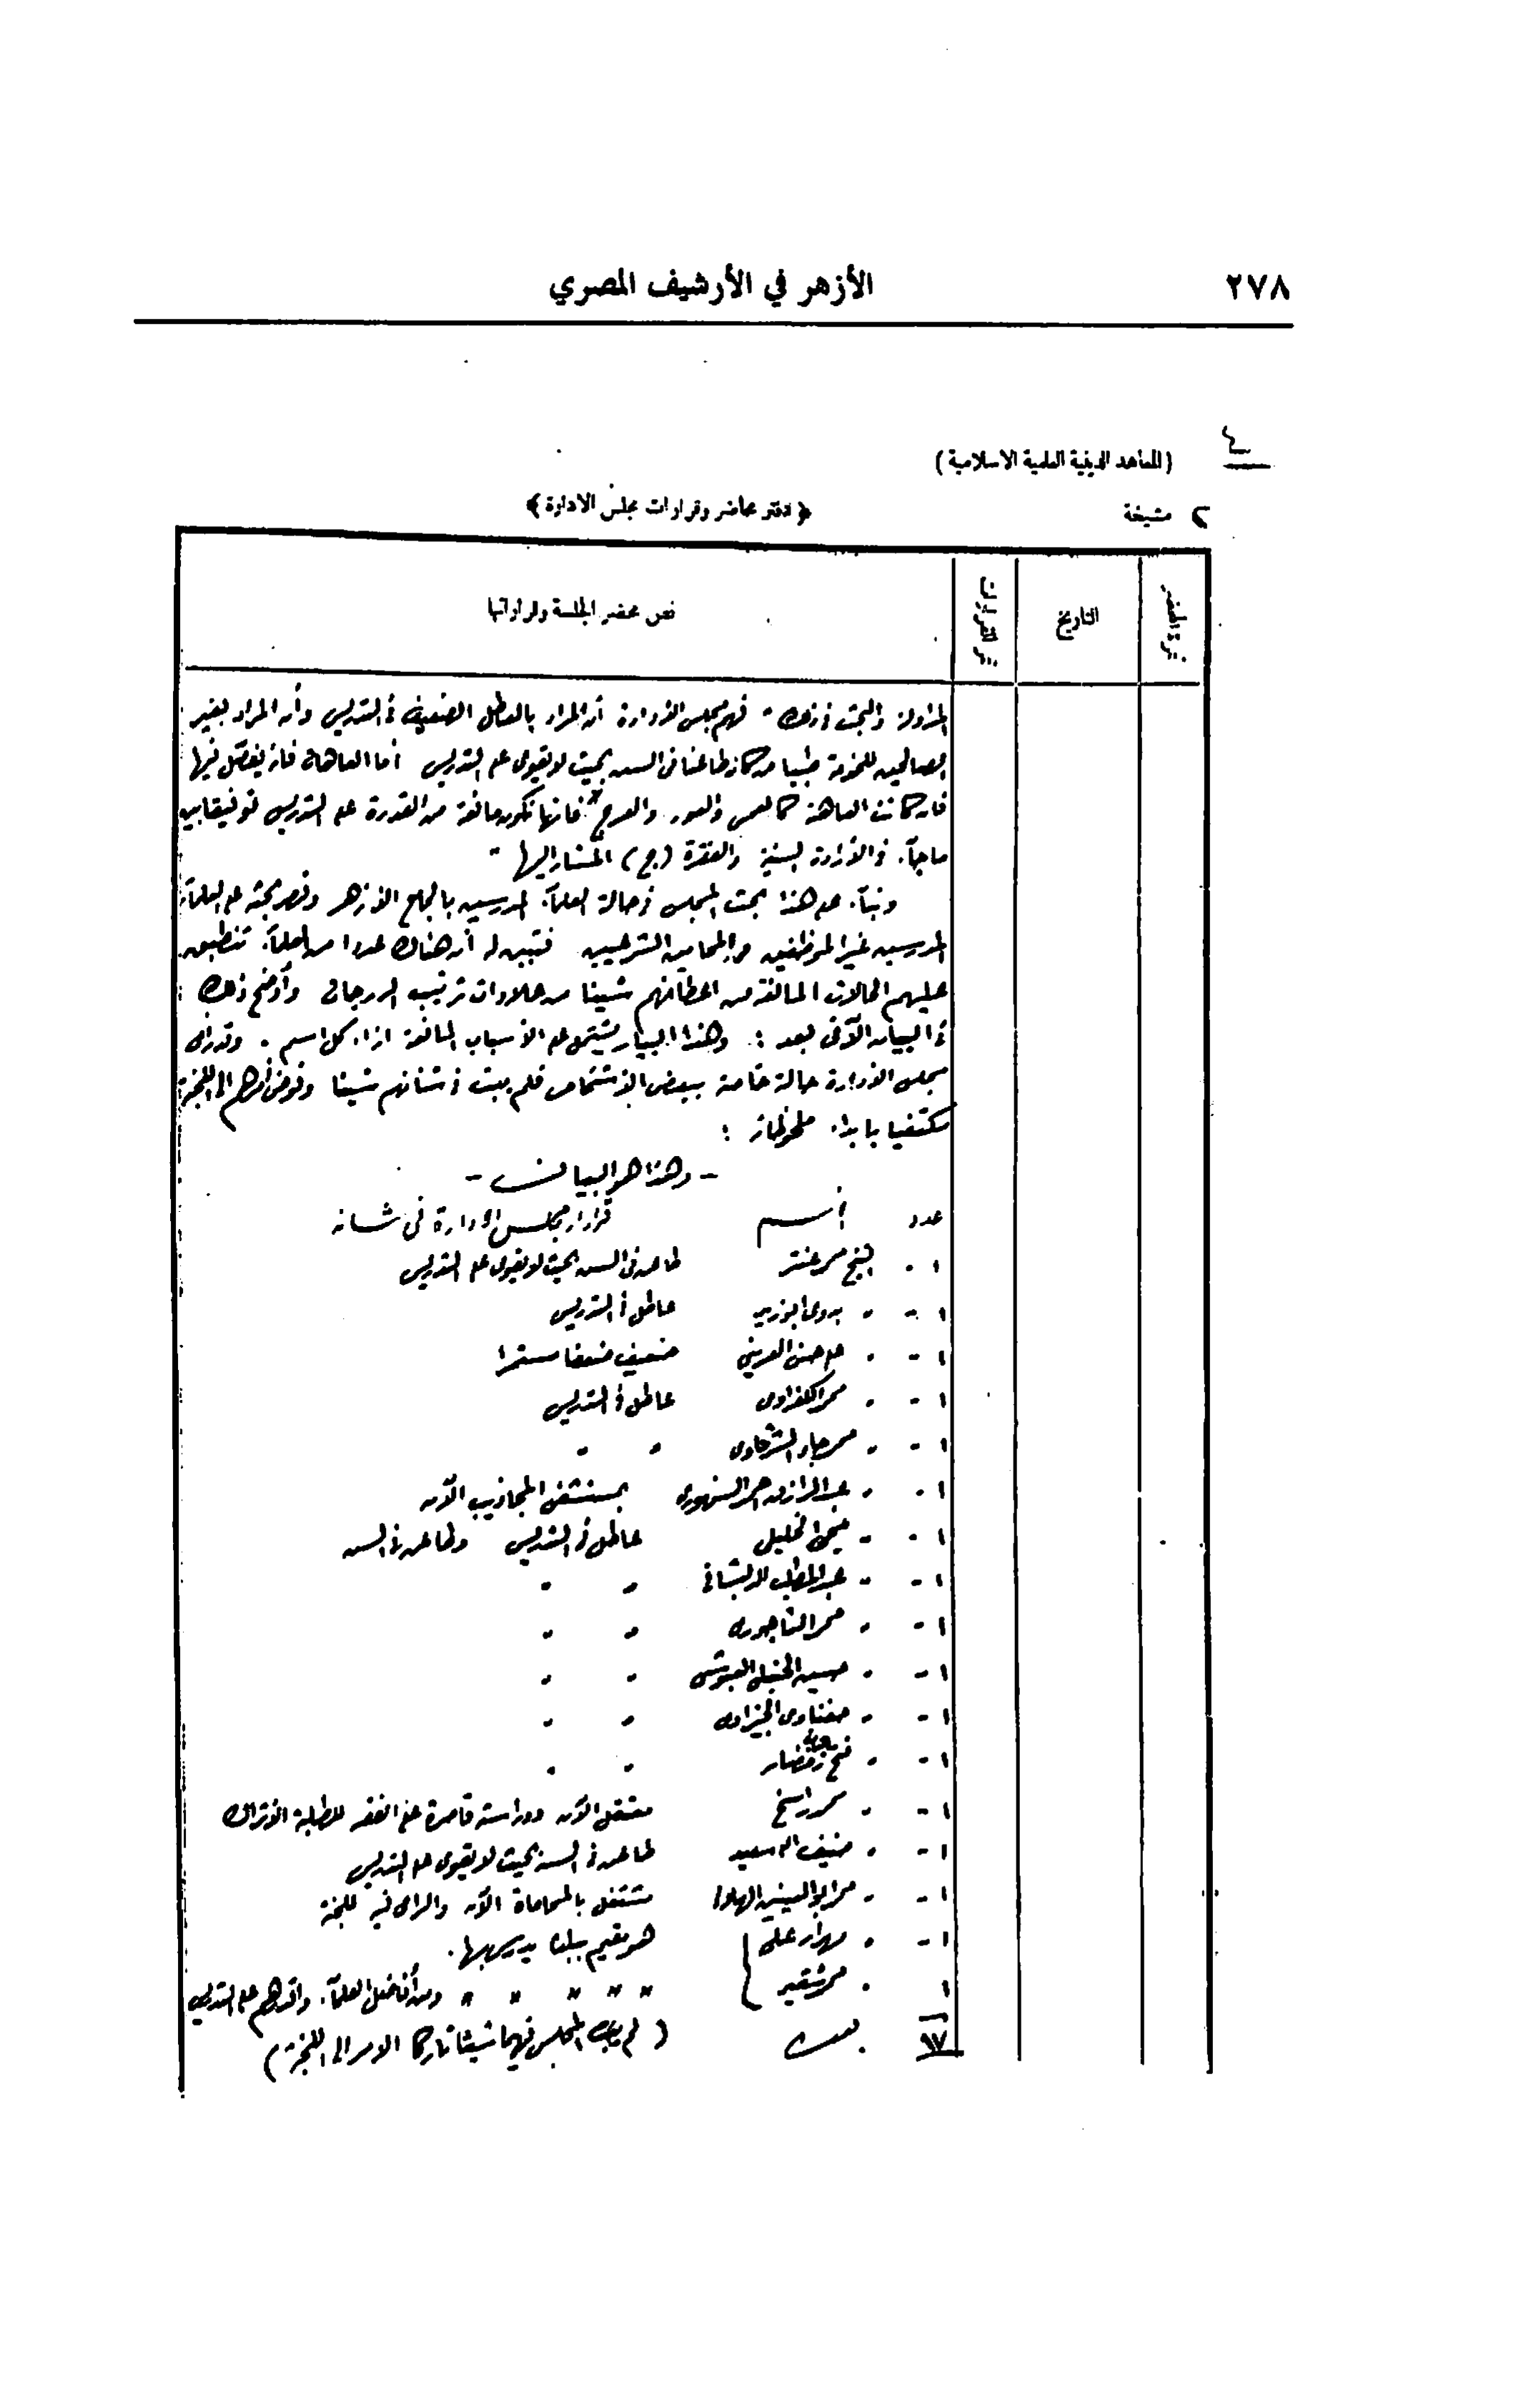 ٢٧٨
الأزهر في الأرشيف المصري
٤
(المعاهد الدينية العلمية الاسلامية)
٢ مشيخة
﴿دفتر محاضر وقرارات مجلس الادارة﴾
نمرة المحضر
التاريخ
نمر القرارات
نص محضر الجلسة وقراراتها
المزاولة والبحث فى ذلك - فهم مجلس الادارة أن المراد بالعاطل الضعيف فى التدريس وأن المراد بغير
الصالحين للخدمة طبيا من كان طاعنا فى السن بحيث لا يقوى على التدريس أما العاهات فانه يفصل فيها
فان كانت العاهة كالعمى والعور والعرج فانها تكون مانعة من القدرة على التدريس توفيقا بين
ما جاء فى الارادة السنية والفقرة (ج) المشار اليها -
وبناء على هذا بحث المجلس فى حالة العلماء المدرسين بالجامع الازهر وقصر بحثه على العلماء
المدرسين غير الموظفين والمحامين الشرعيين فتبين له أن هناك عددا من العلماء تنطبق
عليهم الحالات المانعة من اعطائهم شيئا من علاوات ترتيب الدرجات وأوضح ذلك
فى البيان الآتى بعد : وهذا البيان يشتمل على الأسباب المانعة ازاء كل اسم . وقد رأى
مجلس الادارة حالة خاصة ببعض الاشخاص فلم يبت فى شأنهم شيئا وفوض أمرهم الى اللجنة
مكتفيا بابداء ملحوظاته :
- وهذا هو البيان -
عدد اسم قرار مجلس الادارة فى شأنه
١ - الشيخ محمد عنتر طاعن فى السن بحيث لا يقوى على التدريس
١ - - بدوى ابوزيد عاطل فى التدريس
١ - - على حسن العرينى ضعيف ضعفا مستمرا
١ - - محمد الكفراوى عاطل فى التدريس
١ - - محمد جاد الشرقاوى - -
١ - - عبد الرازق احمد السنهورى بمستشفى المجاذيب الآن
١ - - الخليلى عاطل فى التدريس وطاعن فى السن
١ - - عبد المطلب - -
١ - - محمد التاجورى - -
١ - - حسين الحنبلى - -
١ - - حفناوى الجيزاوى - -
١ - - رمضان - -
١ - - محمد راسخ الآن ودراسته قاصرة على الفقه للطلبة الاتراك
١ - - السعيد طاعن فى السن بحيث لا يقوى على التدريس
١ - - محمد ابو العينين مشتغل بالمحاماة الآن والرأى فيه للجنة
١ - - على هو مقيم ببلدنا يدرس بها.
١ - محمد شقير " " " " " ومن أفاضل العلماء واقدرهم على التدريس
١٧ (لم يبت المجلس فيهما شيئا تاركا الامر الى اللجنة)